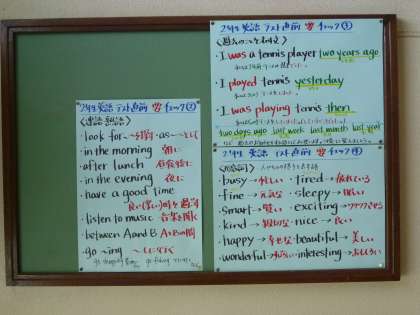 2年生 英語 テスト直前 チェック②
《連語・熟語》
・look for ~を探す ・as~として
・in the morning 朝に
・after lunch 昼食後に
・in the evening 夜に
・have a good time
・listen to music 音楽を聞く
・between A and B AとBの間
・go ~ing
2年生 英語 テスト直前 チェック
・I was a tennis player two years ago
・I played tennis yesterday
・I was playing tennis then
two days ago last week last month last year
2年生 英語 テスト直前 チェック
busy→忙しい ・tired→疲れている
・fine→元気な ・sleepy→眠い
・smart→賢い ・exciting→ワクワクさせる
・kind→親切な ・nice→良い
・happy→幸せな ・beautiful→美しい
・wonderful→すばらしい ・interesting→おもしろい